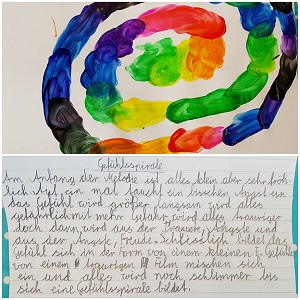 Gefühlsspirale
Am Anfang der Melodie ist alles klein aber sehr fröh-
lich. Auf ein mal taucht ein bisschen Angst ein
das Gefühl wird größer langsam wird alles
gefährlich mit mehr Gefahr wird alles trauriger
doch dann wird aus der Trauer, Ängste und
aus der Angste, Freude. Schlisslich bildet das
Gefühl sich in der Form von einem kleinen Gefühle
von einem traurigen Film mischen sich
ein und alles wird noch schlimmer bis
sich eine Gefühlsspirale bildet.